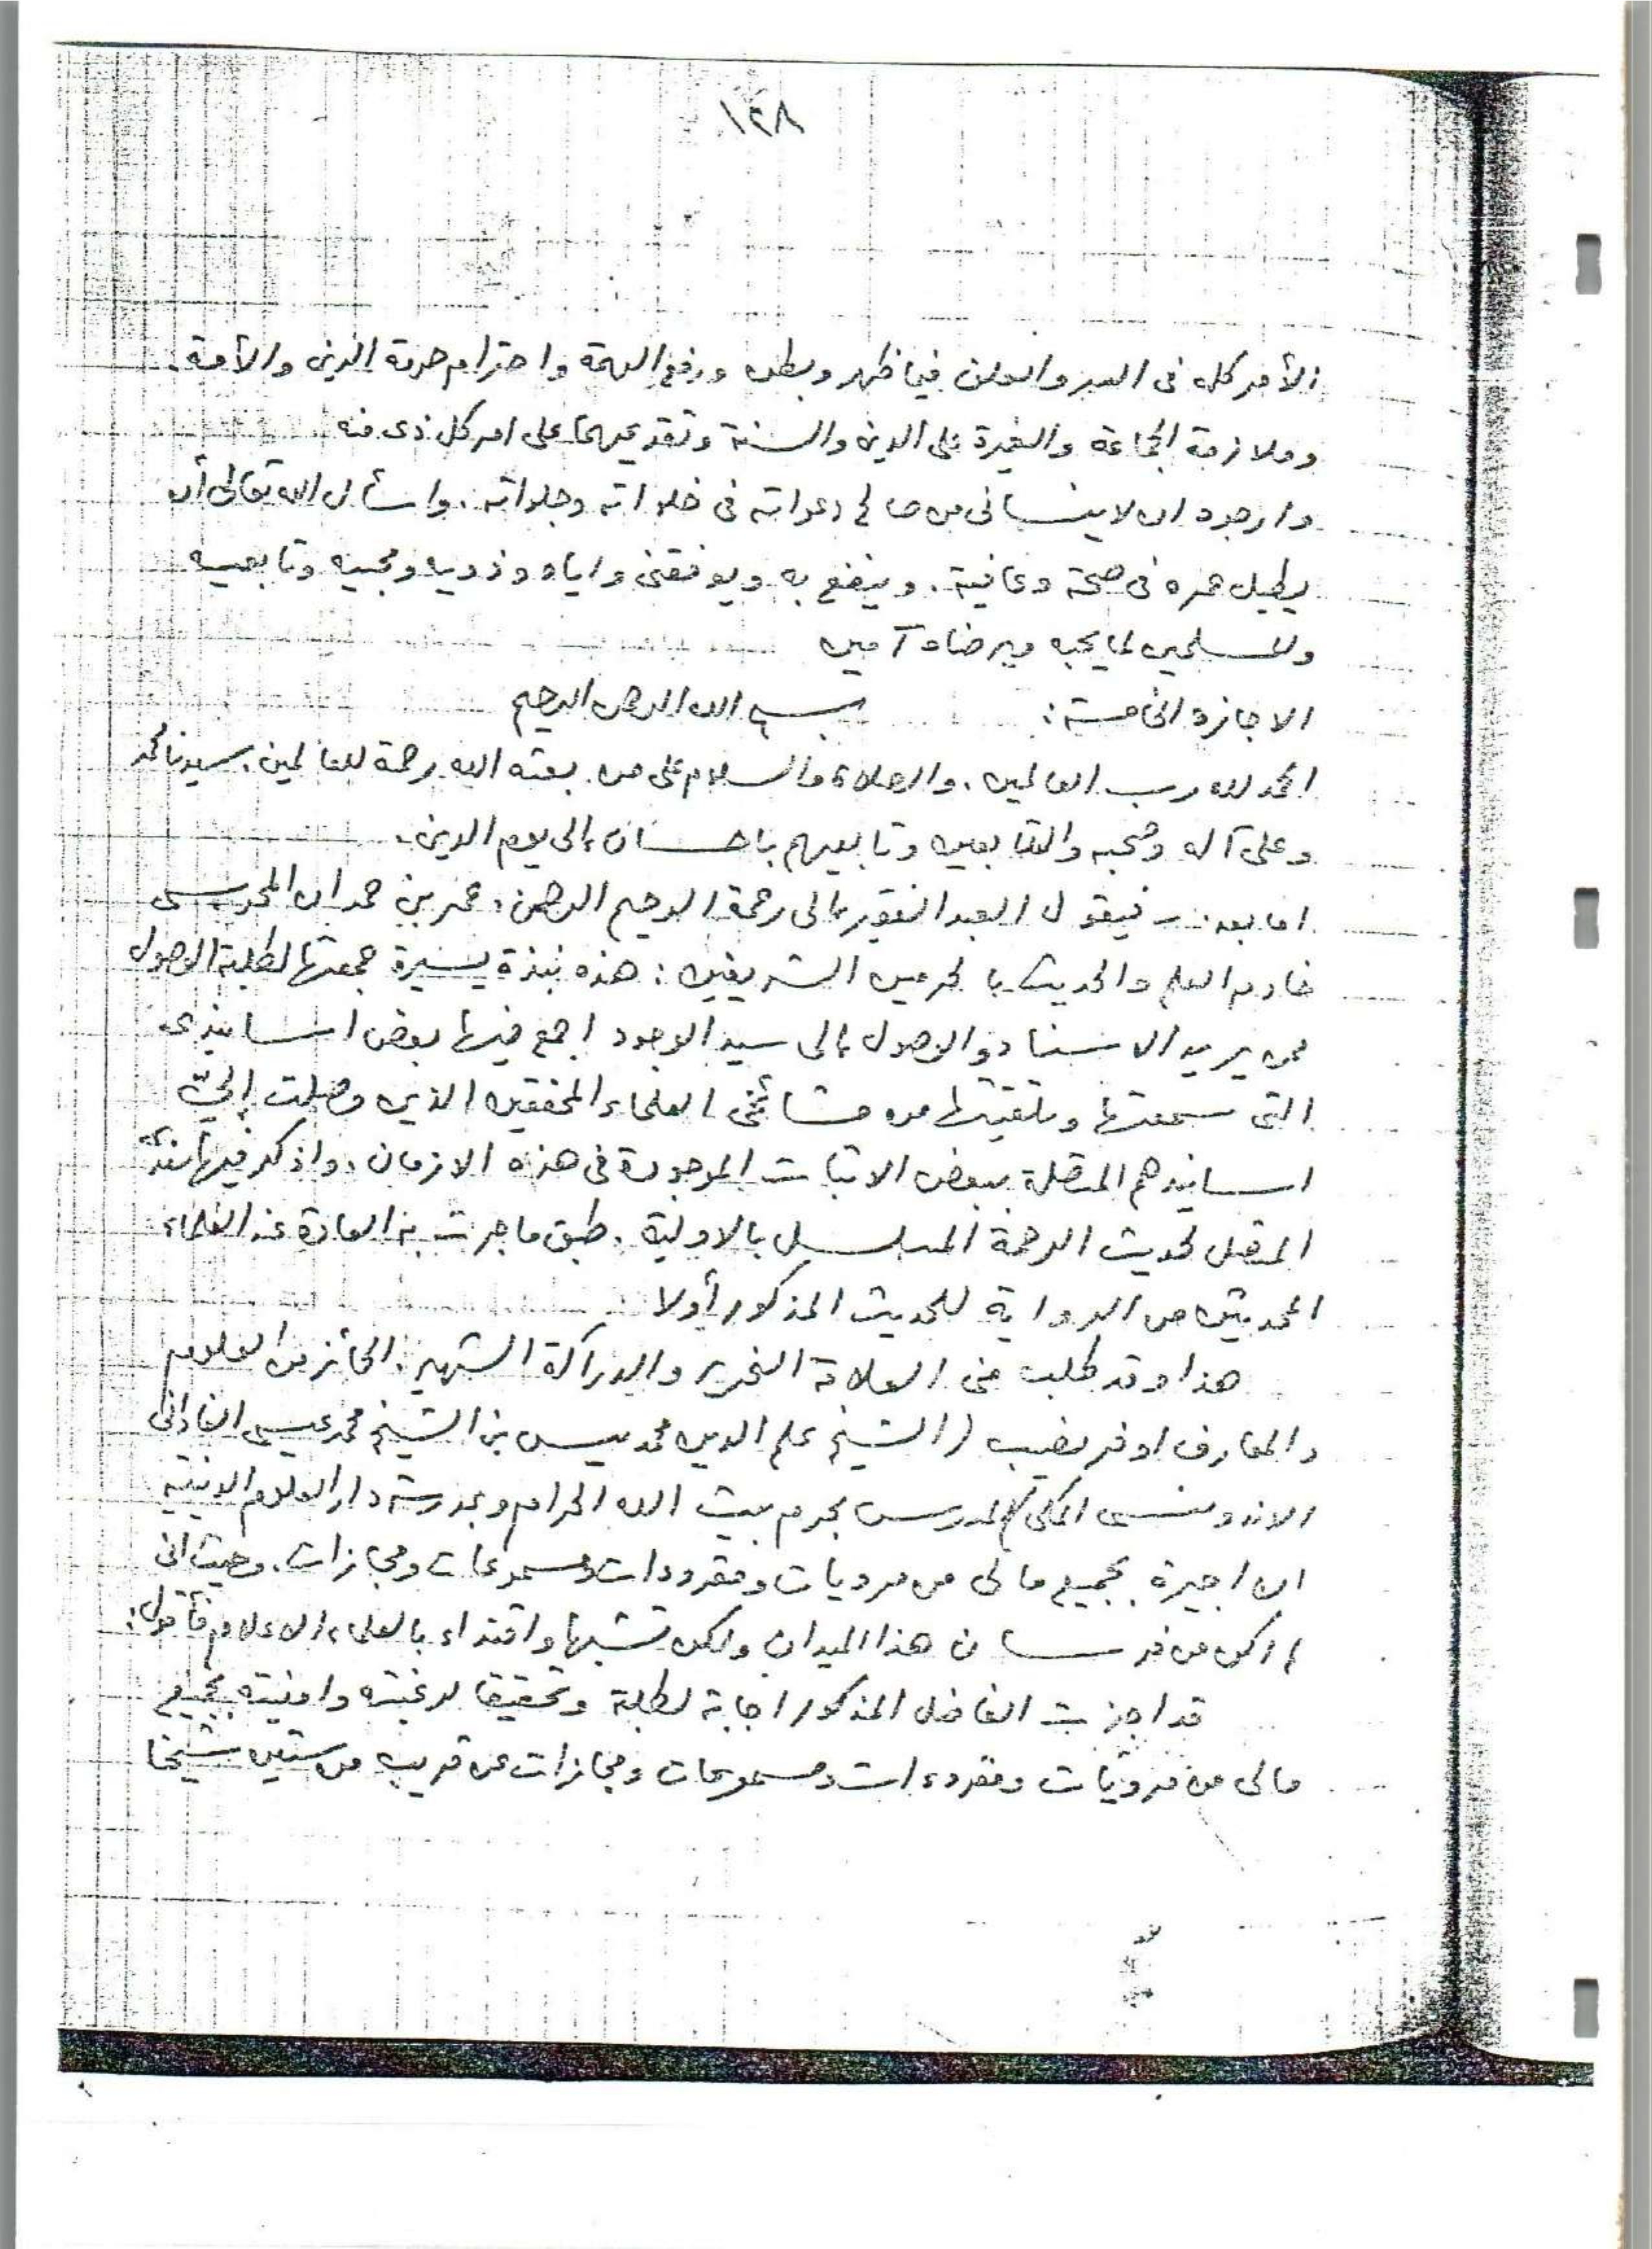 ١٢٨
الأمر كله فى السر والعلن فيما ظهر وبطن ورفع الهمة واحترام حرمة الدين والأمة.
وملازمة الجماعة والغيرة على الدين والسنة وتقديمهما على امر كل ذى منه
وارجوه ان لا ينسانى من صالح دعواته فى خلواته وجلواته. واسأل الله تعالى أن
يطيل عمره فى صحة وعافية. وينفع به ويوفقنى واياه وذويه ومحبيه وتابعيه
والمسلمين لما يحبه ويرضاه آمين
الاجازة الخامسة: بسم الله الرحمن الرحيم
الحمد لله رب العالمين، والصلاة والسلام على من بعثه الله رحمة للعالمين، سيدنا محمد
وعلى آله وصحبه والتابعين وتابعيهم باحسان إلى يوم الدين.
اما بعد. - فيقول العبد الفقير إلى رحمة الرحيم الرحمن، عمر بن حمدان المحرسى
خادم العلم والحديث بالحرمين الشريفين: هذه نبذة يسيرة جمعتها لطلبة الوصول
ممن يريد الاسناد والوصول إلى سيد الوجود اجمع فيها بعض اسانيدى
التى سمعتها وتلقيتها من مشائخى العلماء المحققين الذين وصلت إليّ
اسانيدهم المتصلة ببعض الاثبات الموجودة فى هذه الازمان، واذكر فيها سندى
المتصل لحديث الرحمة المسلسل بالاولية، طبق ما جرت به العادة عند العلماء
المحدثين من الرواية للحديث المذكور أولا
هذا وقد طلب منى العلامة النحرير والدراكة الشهير، الحائز من العلوم
والمعارف اوفر نصيب (الشيخ علم الدين محمد يس بن الشيخ محمد عيسى الفادانى
الاندونسى المكى) المدرس بحرم بيت الله الحرام وبمدرسة دار العلوم الدينية
ان اجيزة بجميع ما لى من مرويات ومقروءات ومسموعات ومجازات. وحيث انى
لم اكن من فرسان هذا الميدان ولكن تشبها واقتداء بالعلماء الاعلام فأقول:
قد اجزت الفاضل المذكور اجابة لطلبة وتحقيقا لرغبته وامنيته بجميع
مالى من مرويّات ومقروءات ومسموعات ومجازات عن قريب من ستين شيخا